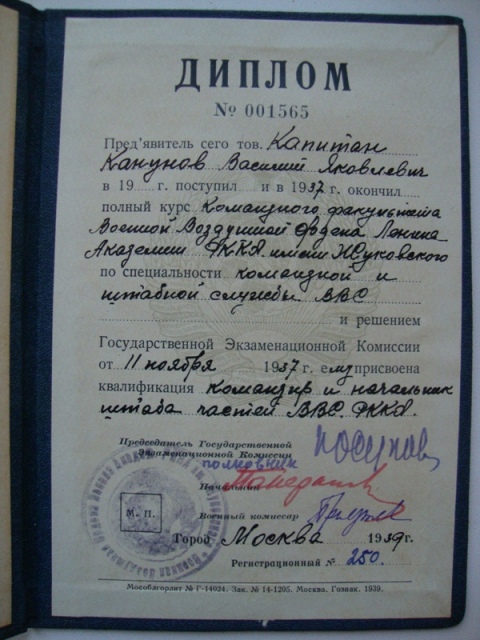 ДИПЛОМ
№ 001565
Пред'явитель сего тов. Капитан
Канунов Василий Яковлевич
в 19 г. поступил и в 1937 г. окончил
полный курс Командного факультета
Военной Воздушной Ордена Ленина
Академии РККА имени Жуковского
по специальности командной и
штабной службы ВВС
и решением
Государственной Экзаменационной Комиссии
от 11 ноября 1937 г. ему присвоена
квалификация командир и начальник
штаба частей ВВС РККА.
Председатель Государственной
Экзаменационной Комиссии
полковник
Начальник
М. П.
Военный комиссар
Город Москва 1939 г.
Регистрационный № 250.
Мособлгорлит № Г-14024. Зак. № 14-1205. Москва. Гознак. 1939.